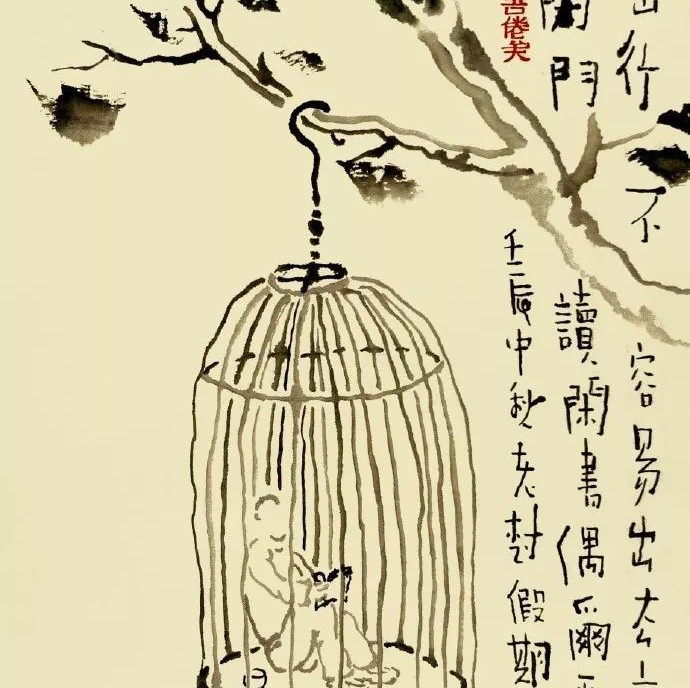 出行不容易出去
關門讀閑書偶爾
壬辰中秋老樹假期
吾倦矣